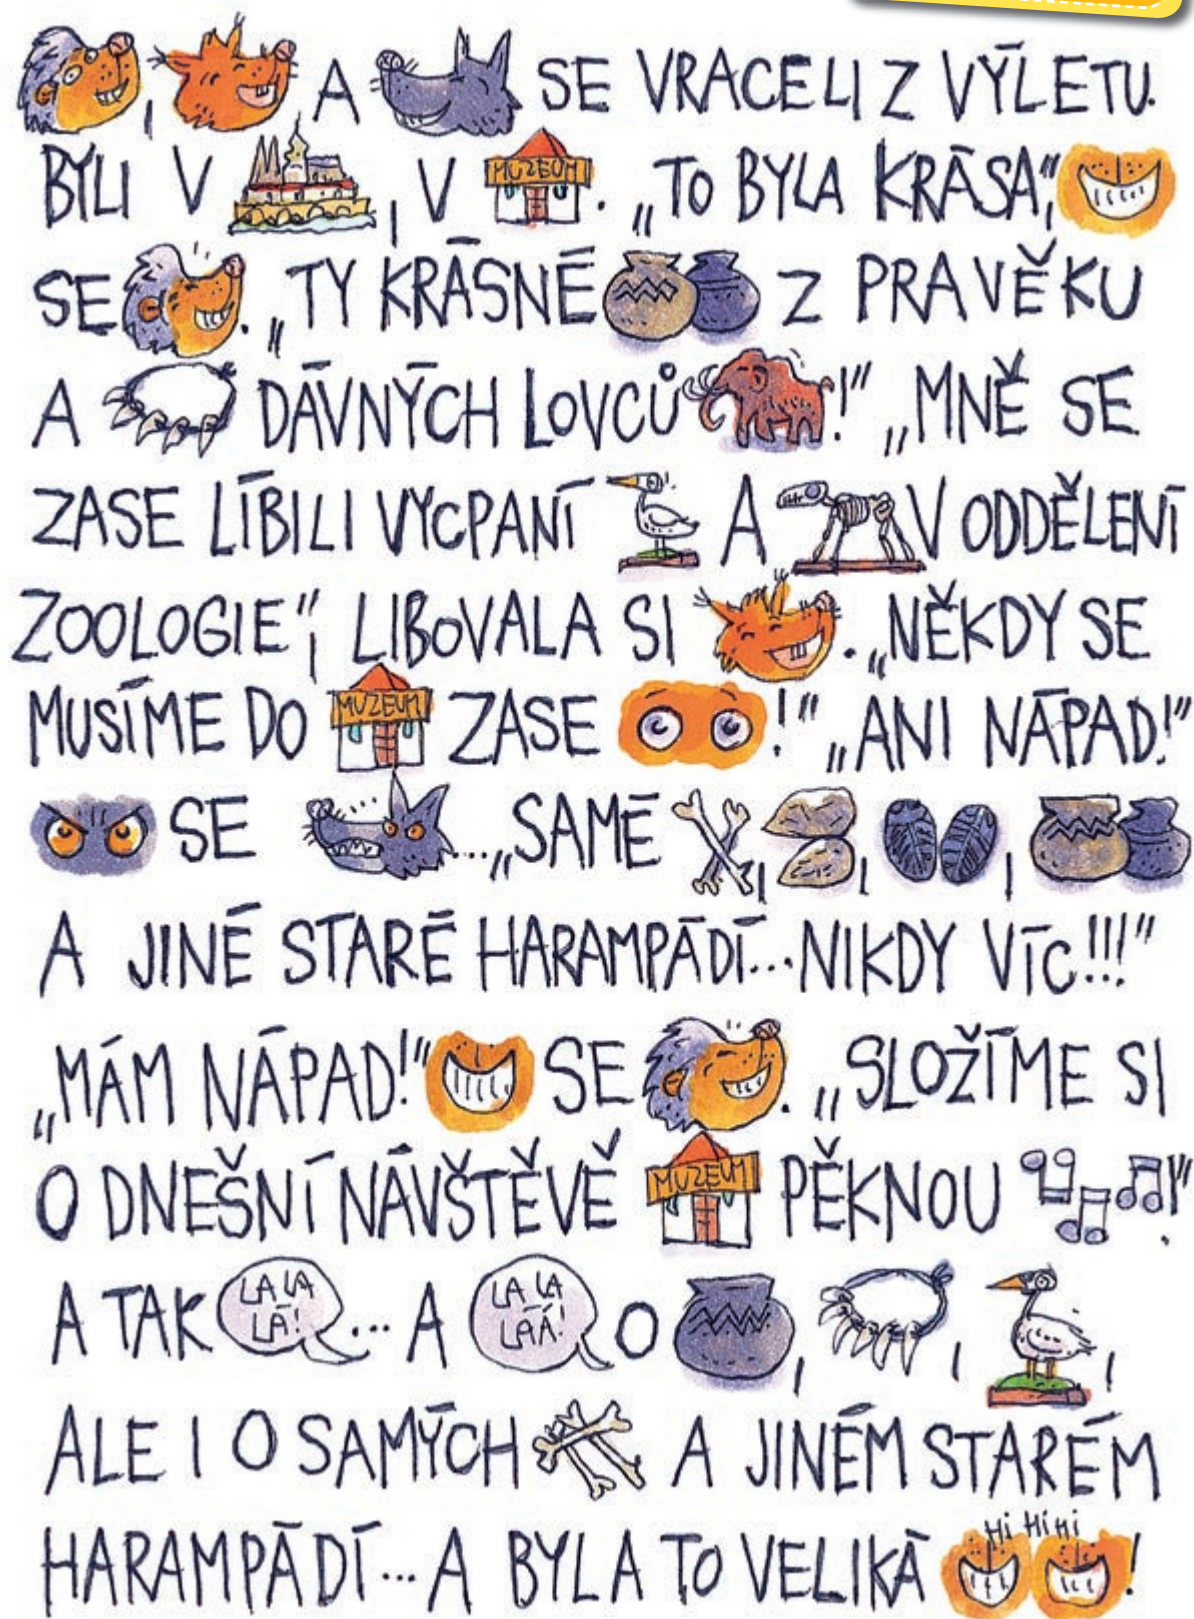 , A SE VRACELI Z VÝLETU.
BYLI V , V MUZEUM. „TO BYLA KRÁSA“,
SE . „TY KRÁSNÉ Z PRAVĚKU
A DÁVNÝCH LOVCŮ !“ „MNĚ SE
ZASE LÍBILI VYCPANÍ A V ODDĚLENÍ
ZOOLOGIE“, LIBOVALA SI . „NĚKDY SE
MUSÍME DO MUZEUM ZASE !“ „ANI NÁPAD!“
SE ... „SAMÉ , , ,
A JINÉ STARÉ HARAMPÁDÍ... NIKDY VÍC!!!“
„MÁM NÁPAD!“ SE . „SLOŽÍME SI
O DNEŠNÍ NÁVŠTĚVĚ MUZEUM PĚKNOU !“
A TAK LA LA LÁ! ... A LA LA LAÁ! O , , ,
ALE I O SAMÝCH A JINÉM STARÉM
HARAMPÁDÍ... A BYLA TO VELIKÁ HI HI HI !